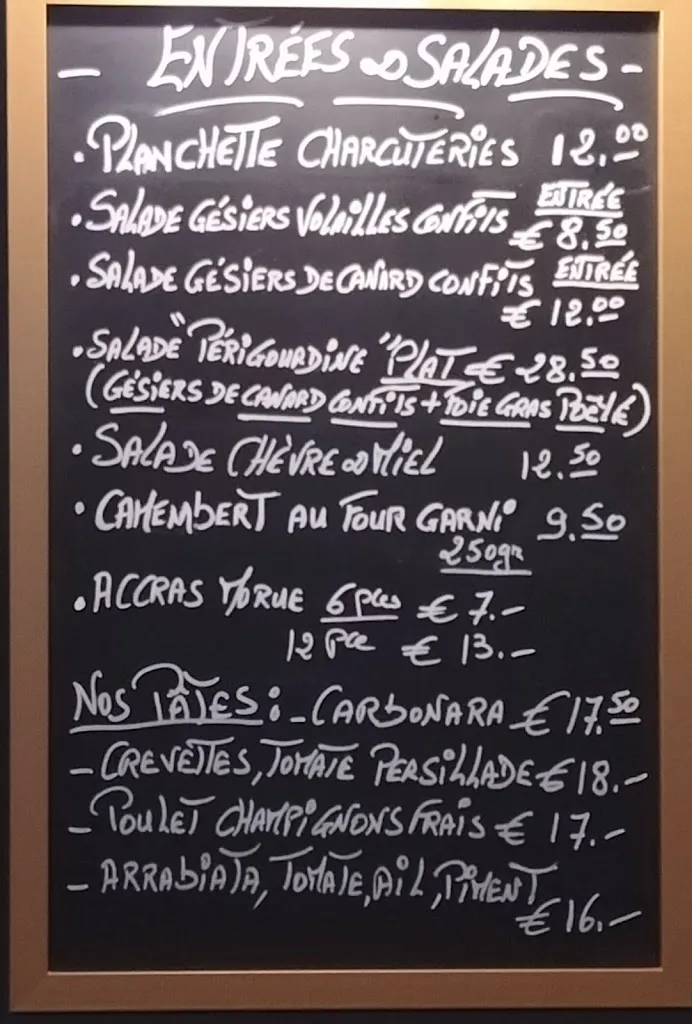 - ENTRÉES & SALADES -
• PLANCHETTE CHARCUTERIES 12.00
• SALADE GÉSIERS VOLAILLES CONFITS ENTRÉE
€ 8.50
• SALADE GÉSIERS DE CANARD CONFITS ENTRÉE
€ 12.00
• SALADE "PÉRIGOURDINE" PLAT € 28.50
(GÉSIERS DE CANARD CONFITS + FOIE GRAS POÊLÉ)
• SALADE CHÈVRE & MIEL 12.50
• CAMEMBERT AU FOUR GARNI 9.50
250gr
• ACCRAS MORUE 6 pces € 7.-
12 Pce € 13.-
NOS PÂTES : - CARBONARA € 17.50
- CREVETTES, TOMATE PERSILLADE € 18.-
- POULET CHAMPIGNONS FRAIS € 17.-
- ARRABIATA, TOMATE, AIL, PIMENT
€ 16.-